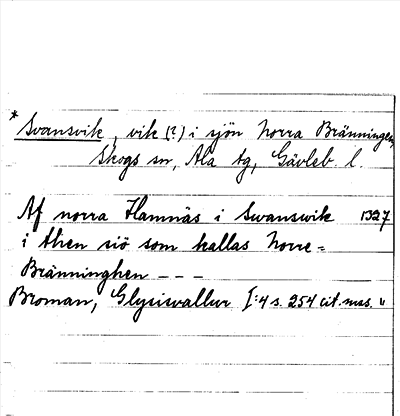 * Svansvik, vik (?) i sjön Norra Bränningen,
Skogs sn, Ala tg, Gävleb. l.
Af norra Hamnäs i Swanswik 1327
i then siö som kallas Norre=
Bränninghen – – –
Broman, Glysisvallur I:4 s. 254 cit. mss.